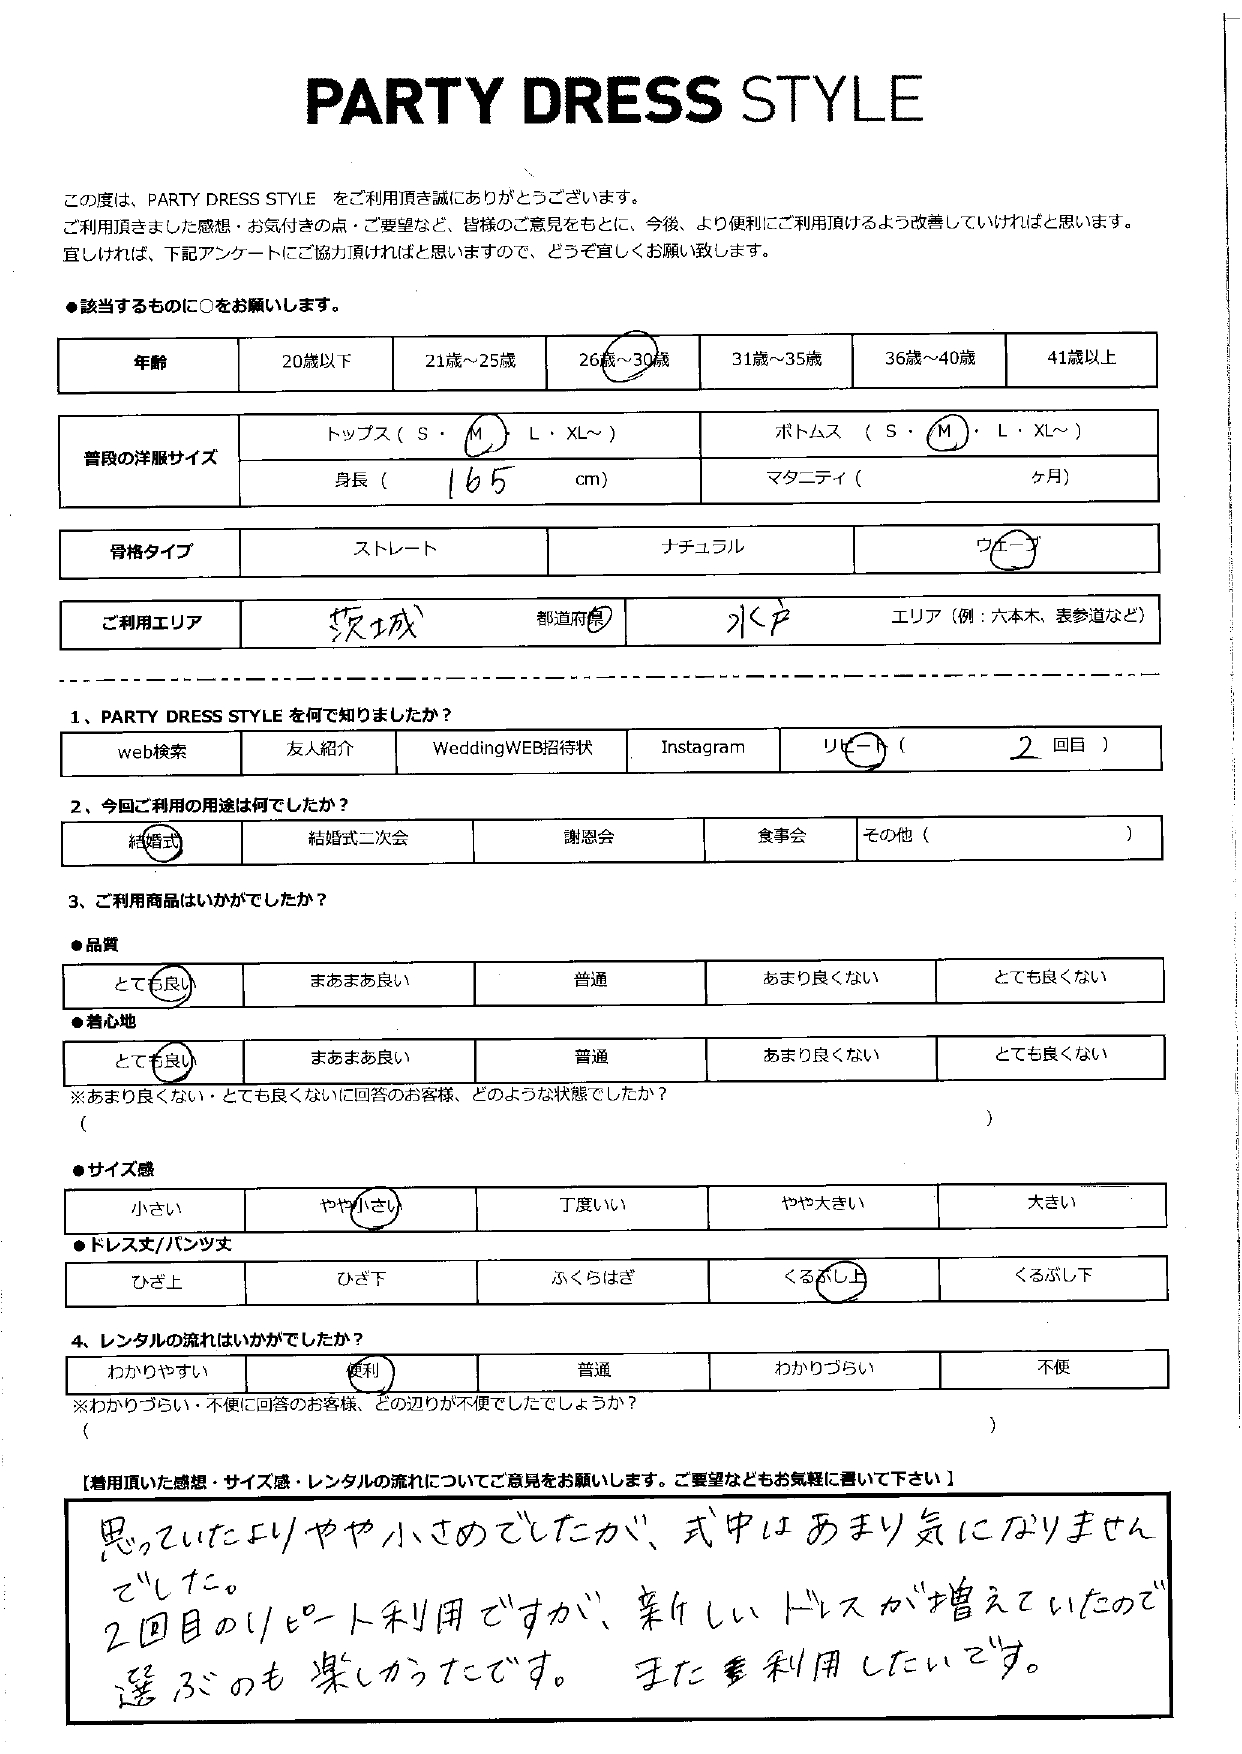 PARTY DRESS STYLE
この度は、PARTY DRESS STYLE をご利用頂き誠にありがとうございます。
ご利用頂きました感想・お気付きの点・ご要望など、皆様のご意見をもとに、今後、より便利にご利用頂けるよう改善していければと思います。
宜しければ、下記アンケートにご協力頂ければと思いますので、どうぞ宜しくお願い致します。
●該当するものに○をお願いします。
年齢 20歳以下 21歳～25歳 26歳～30歳 31歳～35歳 36歳～40歳 41歳以上
普段の洋服サイズ トップス ( S ・ M ・ L ・ XL～ ) ボトムス ( S ・ M ・ L ・ XL～ )
身長 ( 165 cm) マタニティ ( ヶ月)
骨格タイプ ストレート ナチュラル ウェーブ
ご利用エリア 茨城 都道府県 水戸 エリア（例：六本木、表参道など）
1、PARTY DRESS STYLE を何で知りましたか？
web検索 友人紹介 WeddingWEB招待状 Instagram リピート ( 2 回目 )
2、今回ご利用の用途は何でしたか？
結婚式 結婚式二次会 謝恩会 食事会 その他 ( )
3、ご利用商品はいかがでしたか？
●品質
とても良い まあまあ良い 普通 あまり良くない とても良くない
●着心地
とても良い まあまあ良い 普通 あまり良くない とても良くない
※あまり良くない・とても良くないに回答のお客様、どのような状態でしたか？
( )
●サイズ感
小さい やや小さい 丁度いい やや大きい 大きい
●ドレス丈/パンツ丈
ひざ上 ひざ下 ふくらはぎ くるぶし上 くるぶし下
4、レンタルの流れはいかがでしたか？
わかりやすい 便利 普通 わかりづらい 不便
※わかりづらい・不便に回答のお客様、どの辺りが不便でしたでしょうか？
( )
【着用頂いた感想・サイズ感・レンタルの流れについてご意見をお願いします。ご要望などもお気軽に書いて下さい 】
思っていたよりやや小さめでしたが、式中はあまり気になりません
でした。
2回目のリピート利用ですが、新しいドレスが増えていたので
選ぶのも楽しかったです。 また利用したいです。